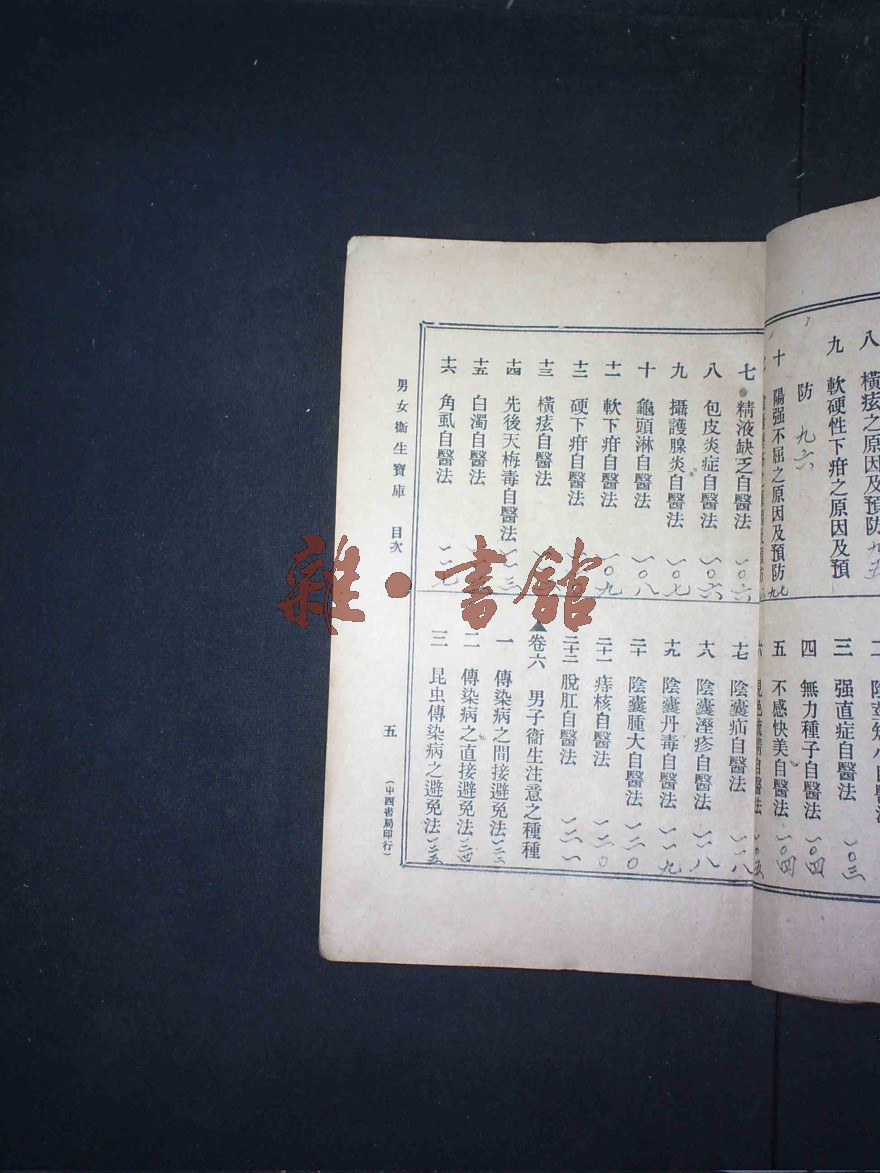 八 橫痃之原因及預防 九五
九 軟硬性下疳之原因及預
防 九六
十 陽强不屈之原因及預防 九七
三 强直症自醫法 一〇三
四 無力種子自醫法 一〇四
五 不感快美自醫法 一〇四
七 精液缺乏自醫法 一〇六
八 包皮炎症自醫法 一〇六
九 攝護腺炎自醫法 一〇七
十 龜頭淋自醫法 一〇八
十一 軟下疳自醫法 一〇九
十二 硬下疳自醫法
十三 橫痃自醫法
十四 先後天梅毒自醫法 一一三
十五 白濁自醫法
十六 角虱自醫法 一一七
十七 陰囊疝自醫法 一一八
十八 陰囊溼疹自醫法 一一八
十九 陰囊丹毒自醫法 一一九
二十 陰囊腫大自醫法 一二〇
二十一 痔核自醫法 一二〇
二十二 脫肛自醫法 一二一
▲卷六 男子衞生注意之種種
一 傳染病之間接避免法 一二三
二 傳染病之直接避免法 一二四
三 昆虫傳染病之避免法 一二五
男女衞生寶庫 目次
五
(中西書局印行)
雜·書館